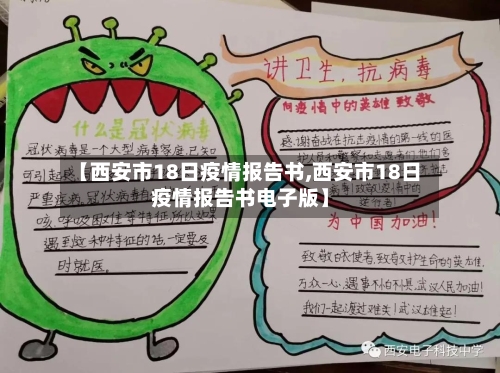 什么是冠状病毒
冠状病毒是一个大型病毒家庭,已知
可引起感
严重疾病
咳、呼吸困难等特征,所以如果
遇到这种特征的话,一定要及
时就医。
【西安市18日疫情报告书,西安市18日
疫情报告书电子版】
讲卫生,抗病毒
向疫情中的英雄致敬
感谢奋战在抗击疫情的第一线的医
护人员和
致敬疫情中的
逆行者!
为中国加油!
致敬白衣使者,致敬护生命的英雄,
万众一心,遇事不怕不惧,武汉人民加油!
我们一起渡过难关!武汉雄起!
西安电子科技中学